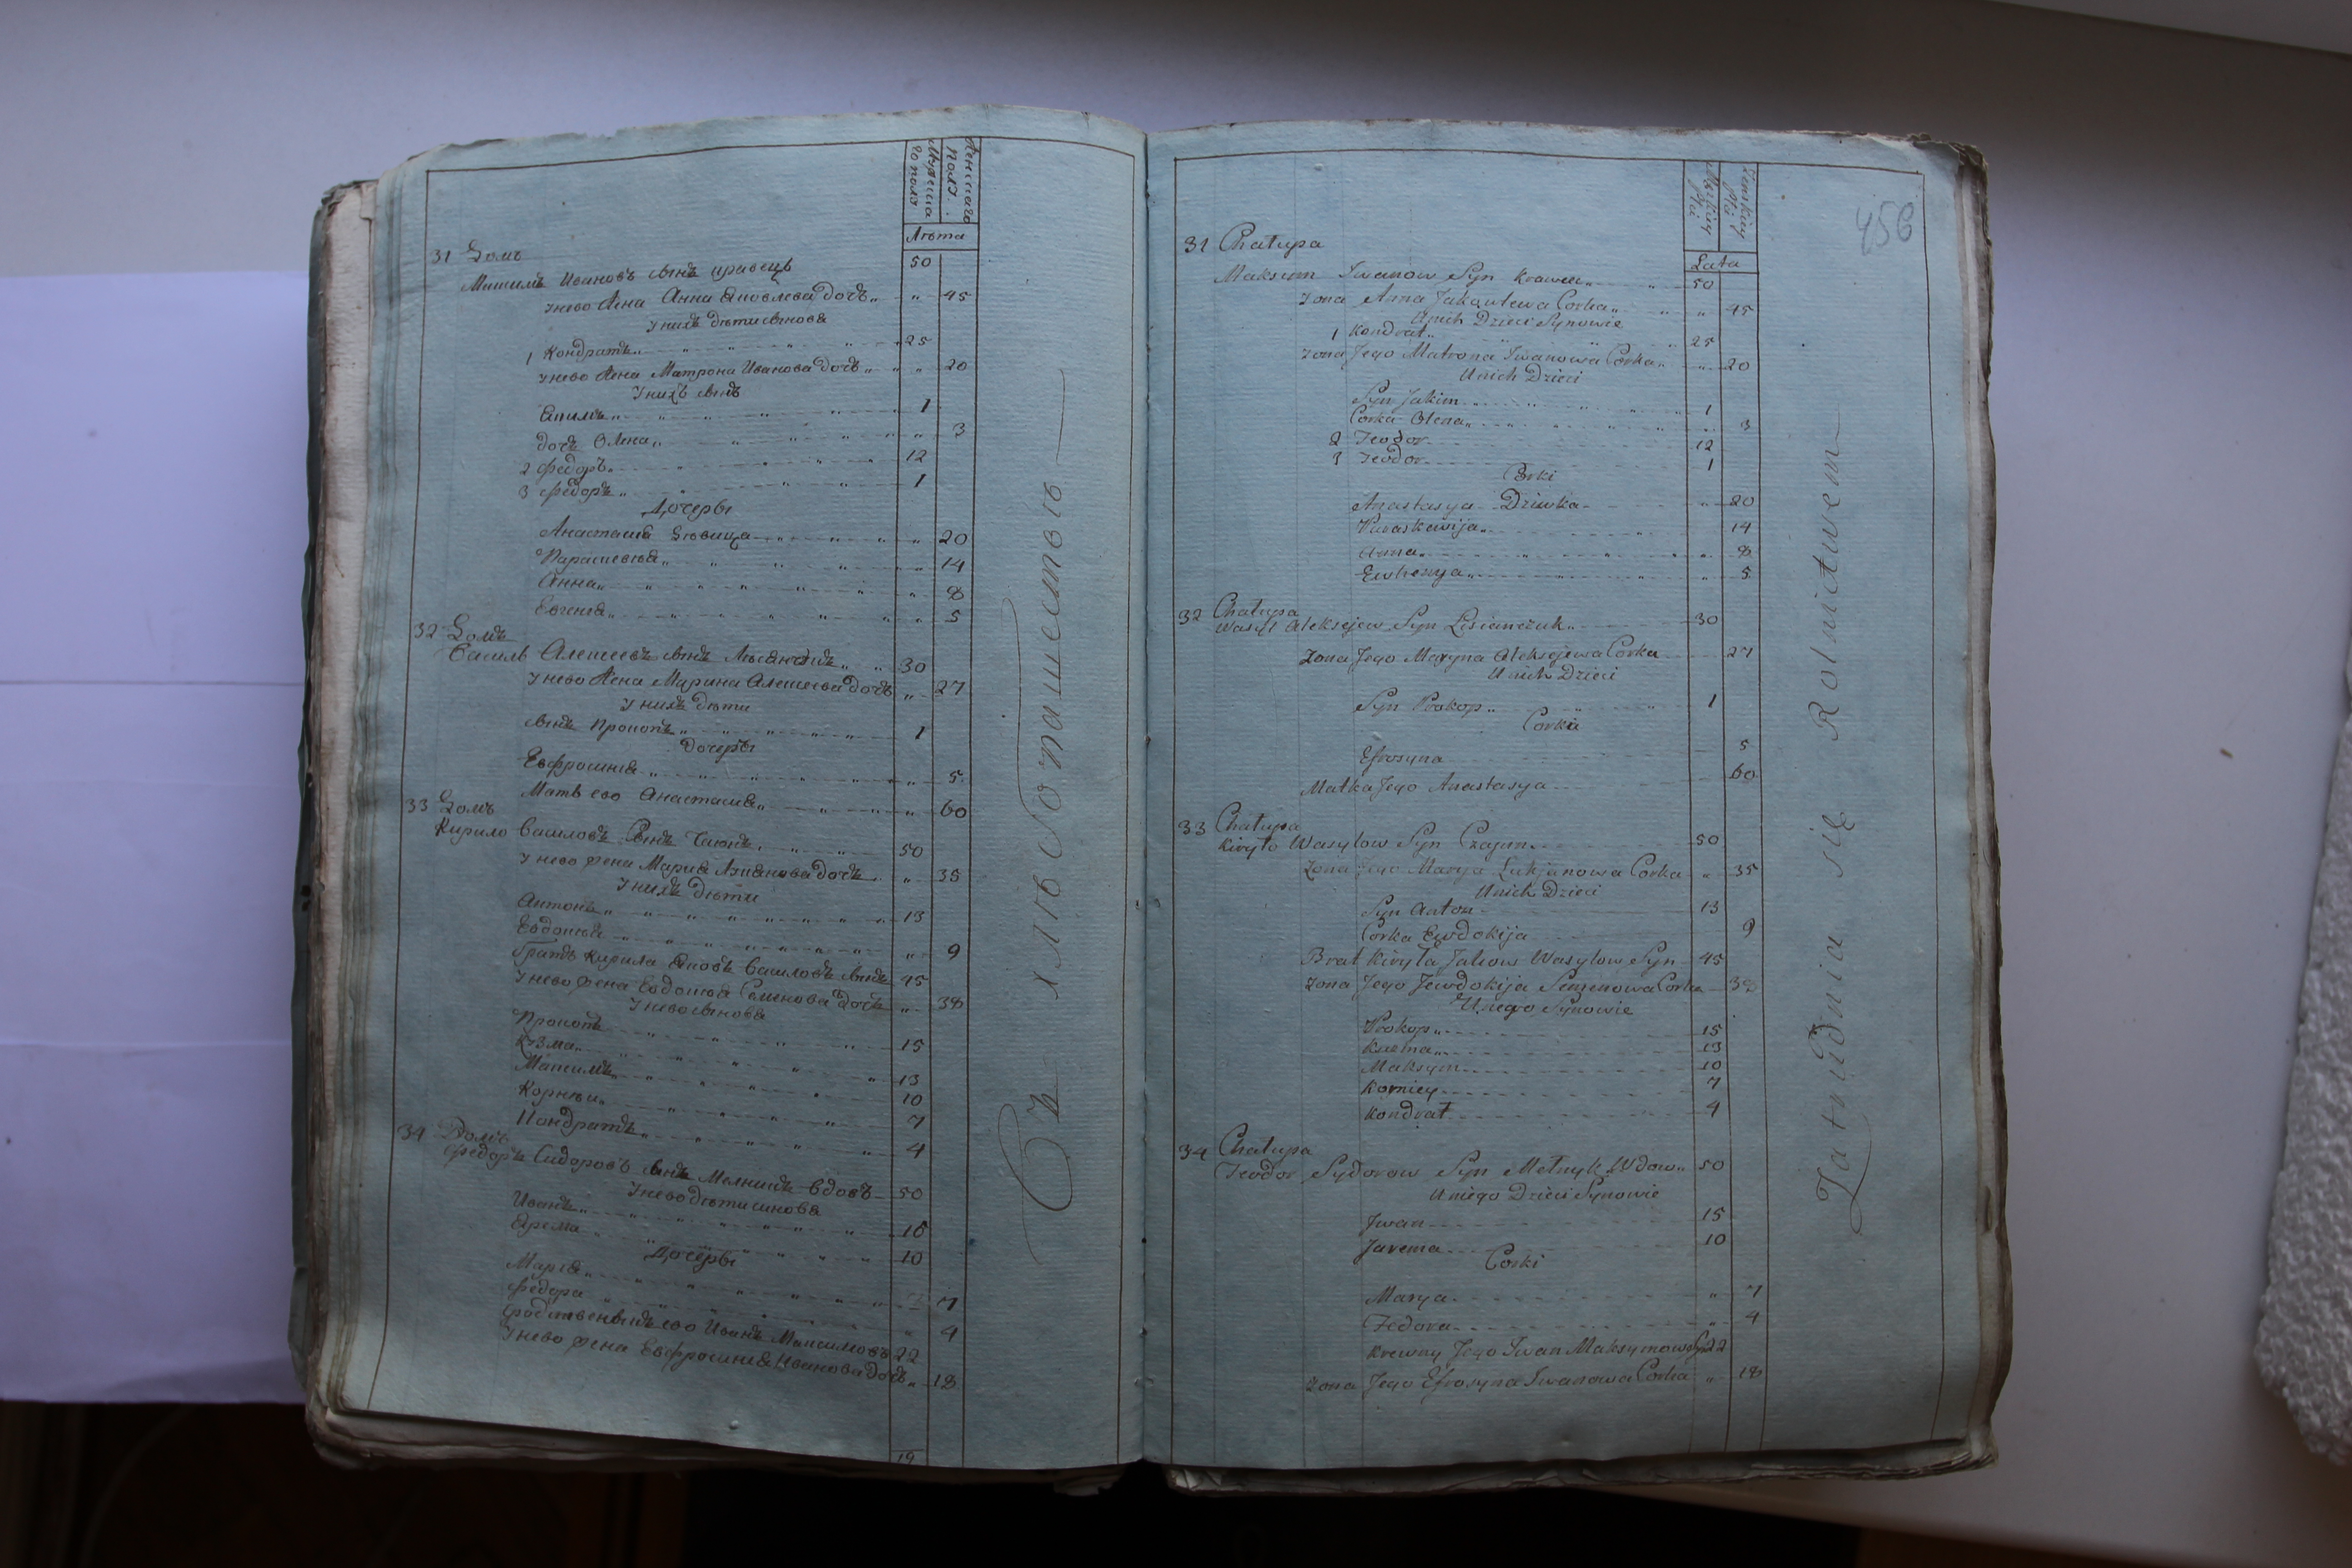 Мужеска
го пола
Женскаго
полу.
Лѣта
31 Домъ
Максимъ Ивановъ сынъ кравецъ 50
У нево жена Анна Яковлева дочь „ 45
У нихъ дѣти сынова
1 Кондратъ 25
У нево жена Матрона Иванова дочь „ 20
У нихъ сынъ
Екимъ 1
дочь Олена „ 3
2 Федоръ 12
3 Федоръ 1
Дочеры
Анастасия Дѣвица „ 20
Параскевия „ 14
Анна „ 8
Евгения „ 5
32 Домъ
Василь Алексеевъ сынъ 30
У нево жена Марина Алексеева дочь „ 27
У нихъ дѣти
сынъ Прокопъ 1
дочеры
Евфросиния „ 5
Мать ево Анастасия „ 60
33 Домъ
Кирило Василовъ Сынъ 50
У нево жена Мария Лукианова дочь „ 35
У нихъ дѣти
Антонъ 13
Евдокия „ 9
Братъ Кирила Яковъ Василовъ сынъ 45
У нево жена Евдокия Семенова дочь „ 38
У нево сынова
Прокопъ 15
Кузма 13
Максимъ 10
Корнѣи 7
Кондратъ 4
34 Домъ
Федоръ Сидоровъ сынъ Мелникъ вдовъ 50
У нево дѣти синова
Иванъ 15
Ярема 10
Дочеры
Мария 7
Федора „ 4
Родственикъ ево Иванъ Максимовъ 22
У нево жена Евфросиния Иванова дочь „ 18
19
Въ хлѣбопашествѣ
456
Męzkiey
płci
Żenskiey
płci
Lata
31 Chałupa
Maksym Iwanow Syn Krawiec 50
Zona Anna Jakowlewa Corka „ 45
U nich Dzieci Synowie
1 Kondrat 25
Zona Jego Matrona Iwanowa Corka „ 20
U nich Dzieci
Syn Jakim 1
Corka Olena „ 3
2 Teodor 12
3 Teodor 1
Corki
Anastasya Dziwka „ 20
Paraskewija 14
Anna „ 8
Ewhenya „ 5
32 Chałupa
Wasyl Aleksejew Syn Lisianczuk 30
Zona Jego Maryna Aleksejewa Corka 27
U nich Dzieci
Syn Prokop 1
Corka
Efrosyna 5
Matka Jego Anastasya 60
33 Chałupa
Kiryło Wasylow Syn Czajun 50
Zona Jego Marya Lukjanowa Corka „ 35
U nich Dzieci
Syn Anton 13
Corka Ewdokija 9
Brat Kiryła Jakow Wasylow Syn 45
Zona Jego Jewdokija Semenowa Corka 38
U niego Synowie
Prokop 15
Kuzma 13
Maksym 10
Korniey 7
Kondrat 4
34 Chałupa
Teodor Sydorow Syn Melnyk Wdow 50
U niego Dzieci Synowie
Jwan 15
Jarema 10
Corki
Marya „ 7
Fedora „ 4
Krewny Jego Iwan Maksymow Sy 22
Zona Jego Efrosyna Iwanowa Corka „ 18
Zatrudnia się Rolnictwem